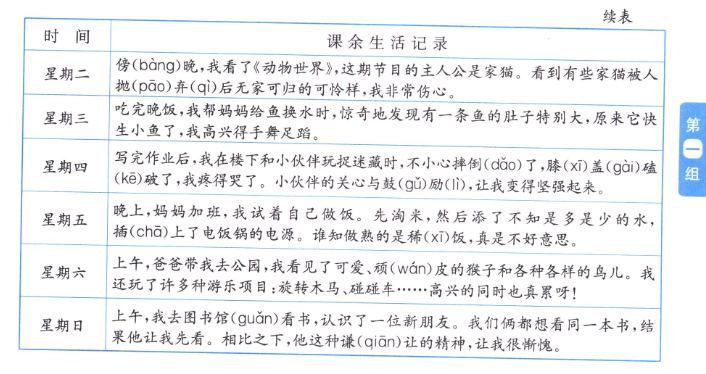 续表
时 间 课余生活记录
星期二
傍(bàng)晚,我看了《动物世界》,这期节目的主人公是家猫。看到有些家猫被人
抛(pāo)弃(qì)后无家可归的可怜样,我非常伤心。
星期三
吃完晚饭,我帮妈妈给鱼换水时,惊奇地发现有一条鱼的肚子特别大,原来它快
生小鱼了,我高兴得手舞足蹈。
星期四
写完作业后,我在楼下和小伙伴玩捉迷藏时,不小心摔倒(dǎo)了,膝(xī)盖(gài)磕
(kē)破了,我疼得哭了。小伙伴的关心与鼓(gǔ)励(lì),让我变得坚强起来。
星期五
晚上,妈妈加班,我试着自己做饭。先淘米,然后添了不知是多是少的水,
插(chā)上了电饭锅的电源。谁知做熟的是稀(xī)饭,真是不好意思。
星期六
上午,爸爸带我去公园,我看见了可爱、顽(wán)皮的猴子和各种各样的鸟儿。我
还玩了许多种游乐项目:旋转木马、碰碰车……高兴的同时也真累呀!
星期日
上午,我去图书馆(guǎn)看书,认识了一位新朋友。我们俩都想看同一本书,结
果他让我先看。相比之下,他这种谦(qiān)让的精神,让我很惭愧。
第一组